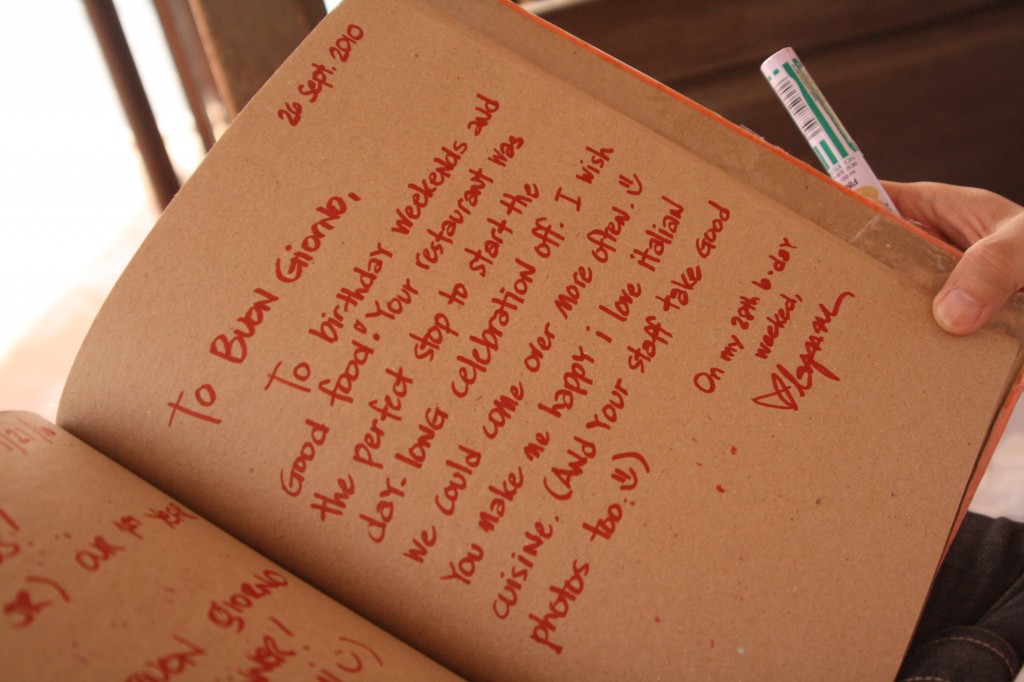 26 Sept. 2010
To BUON GIORNO,
To birthday weekends and
Good food! Your restaurant was
the perfect stop to start the
day-long celebration off. I wish
we could come over more often. :)
You make me happy i love italian
cuisine. (And your staff take Good
photos too. :))
On my 20th b-day
weekend,
our 1st year
BUON GIORNO